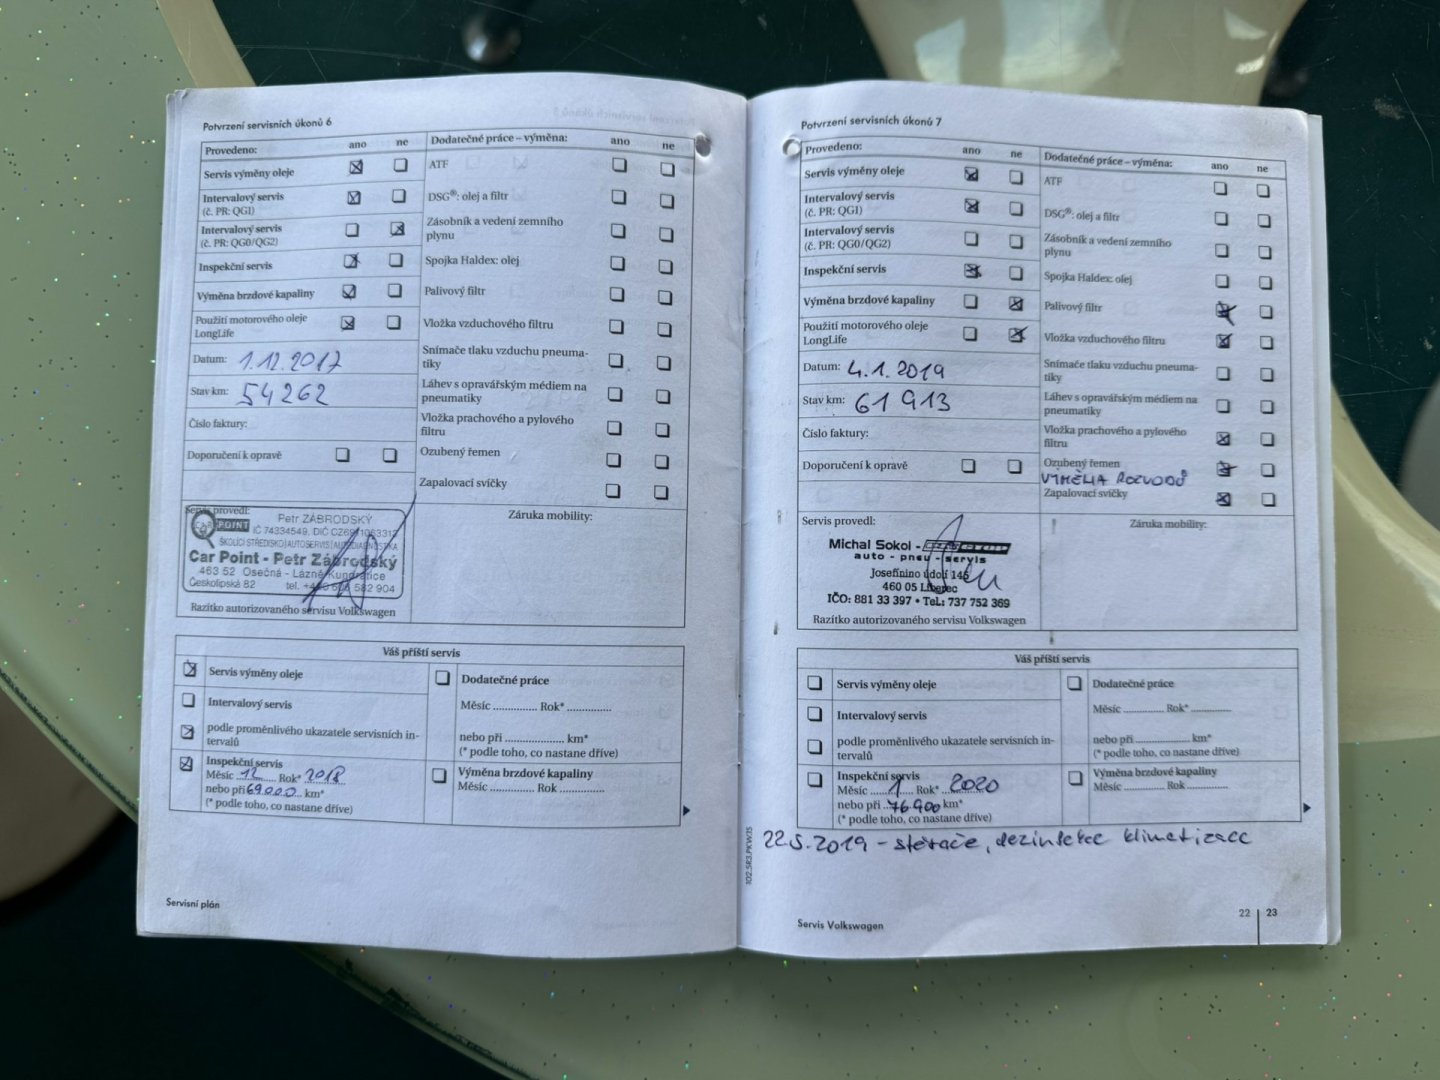 Potvrzení servisních úkonů 6
Provedeno: ano ne
Servis výměny oleje
Intervalový servis
(č. PR: QG1)
Intervalový servis
(č. PR: QG0/QG2)
Inspekční servis
Výměna brzdové kapaliny
Použití motorového oleje
LongLife
Datum: 1.12.2017
Stav km: 54262
Číslo faktury:
Doporučení k opravě
Dodatečné práce – výměna: ano ne
ATF
DSG®: olej a filtr
Zásobník a vedení zemního
plynu
Spojka Haldex: olej
Palivový filtr
Vložka vzduchového filtru
Snímače tlaku vzduchu pneuma-
tiky
Láhev s opravářským médiem na
pneumatiky
Vložka prachového a pylového
filtru
Ozubený řemen
Zapalovací svíčky
Servis provedl:
CAR POINT
Petr ZÁBRODSKÝ
IČ 74334549, DIČ
ŠKOLÍCÍ STŘEDISKO|AUTOSERVIS|AUTODIAGNOSTIKA
Car Point - Petr Zábrodský
463 52 Osečná - Lázně Kundratice
Českolipská 82 tel. 582 904
Razítko autorizovaného servisu Volkswagen
Záruka mobility:
Váš příští servis
Servis výměny oleje
Intervalový servis
podle proměnlivého ukazatele servisních in-
tervalů
Inspekční servis
Měsíc 12 Rok* 2018
nebo při 69.000 km*
(* podle toho, co nastane dříve)
Dodatečné práce
Měsíc ............. Rok* .............
nebo při .................... km*
(* podle toho, co nastane dříve)
Výměna brzdové kapaliny
Měsíc ............. Rok .............
Servisní plán
Potvrzení servisních úkonů 7
Provedeno: ano ne
Servis výměny oleje
Intervalový servis
(č. PR: QG1)
Intervalový servis
(č. PR: QG0/QG2)
Inspekční servis
Výměna brzdové kapaliny
Použití motorového oleje
LongLife
Datum: 4.1.2019
Stav km: 61 913
Číslo faktury:
Doporučení k opravě
Dodatečné práce – výměna: ano ne
ATF
DSG®: olej a filtr
Zásobník a vedení zemního
plynu
Spojka Haldex: olej
Palivový filtr
Vložka vzduchového filtru
Snímače tlaku vzduchu pneuma-
tiky
Láhev s opravářským médiem na
pneumatiky
Vložka prachového a pylového
filtru
Ozubený řemen
VÝMĚNA ROZVODŮ
Zapalovací svíčky
Servis provedl:
Michal Sokol -
auto - pneu - servis
Josefínino údolí 145
460 05 Liberec
IČO: 881 33 397 • Tel.: 737 752 369
Razítko autorizovaného servisu Volkswagen
Záruka mobility:
Váš příští servis
Servis výměny oleje
Intervalový servis
podle proměnlivého ukazatele servisních in-
tervalů
Inspekční servis
Měsíc 1 Rok* 2020
nebo při 76.900 km*
(* podle toho, co nastane dříve)
Dodatečné práce
Měsíc ............. Rok* .............
nebo při .................... km*
(* podle toho, co nastane dříve)
Výměna brzdové kapaliny
Měsíc ............. Rok .............
22.5.2019 - stěrače, dezinfekce klimatizace
102.5R3.PKW.15
Servis Volkswagen
22 23